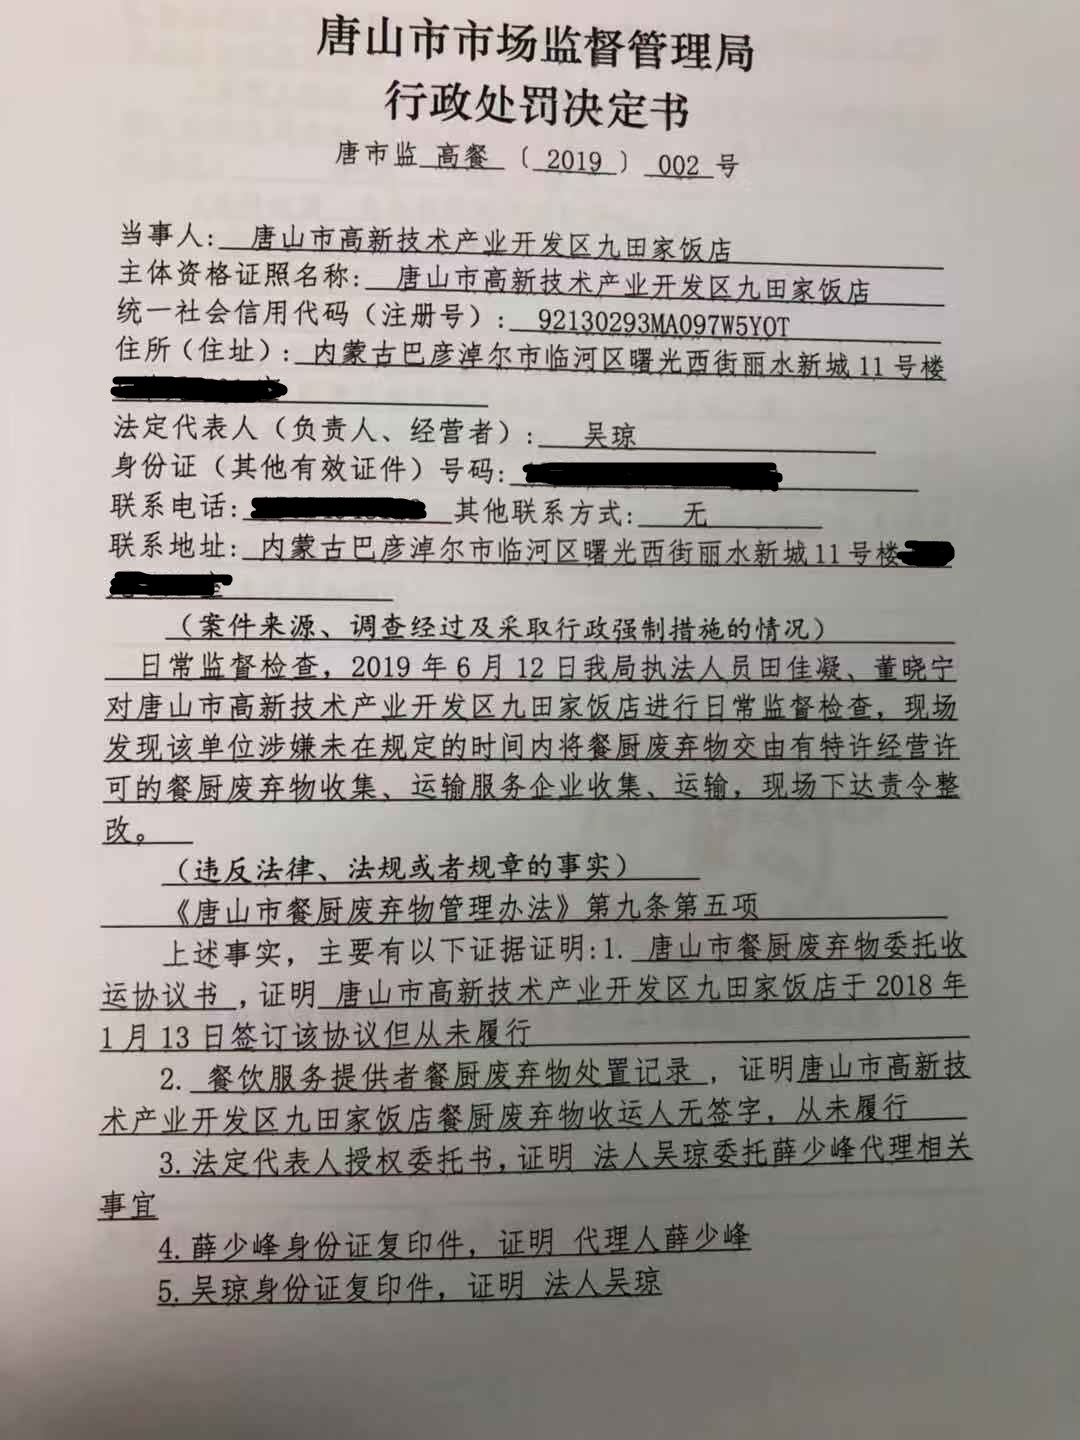 唐山市市场监督管理局
行政处罚决定书
唐市监 高餐 〔 2019 〕 002 号
当事人: 唐山市高新技术产业开发区九田家饭店
主体资格证照名称: 唐山市高新技术产业开发区九田家饭店
统一社会信用代码（注册号）: 92130293MA097W5Y0T
住所（住址）: 内蒙古巴彦淖尔市临河区曙光西街丽水新城11号楼
法定代表人（负责人、经营者）: 吴琼
身份证（其他有效证件）号码:
联系电话: 其他联系方式: 无
联系地址: 内蒙古巴彦淖尔市临河区曙光西街丽水新城11号楼
（案件来源、调查经过及采取行政强制措施的情况）
日常监督检查，2019年6月12日我局执法人员田佳凝、董晓宁
对唐山市高新技术产业开发区九田家饭店进行日常监督检查，现场
发现该单位涉嫌未在规定的时间内将餐厨废弃物交由有特许经营许
可的餐厨废弃物收集、运输服务企业收集、运输，现场下达责令整
改。
（违反法律、法规或者规章的事实）
《唐山市餐厨废弃物管理办法》第九条第五项
上述事实，主要有以下证据证明:1. 唐山市餐厨废弃物委托收
运协议书 ，证明 唐山市高新技术产业开发区九田家饭店于2018年
1月13日签订该协议但从未履行
2. 餐饮服务提供者餐厨废弃物处置记录 ，证明唐山市高新技
术产业开发区九田家饭店餐厨废弃物收运人无签字，从未履行
3.法定代表人授权委托书，证明 法人吴琼委托薛少峰代理相关
事宜
4.薛少峰身份证复印件，证明 代理人薛少峰
5.吴琼身份证复印件，证明 法人吴琼